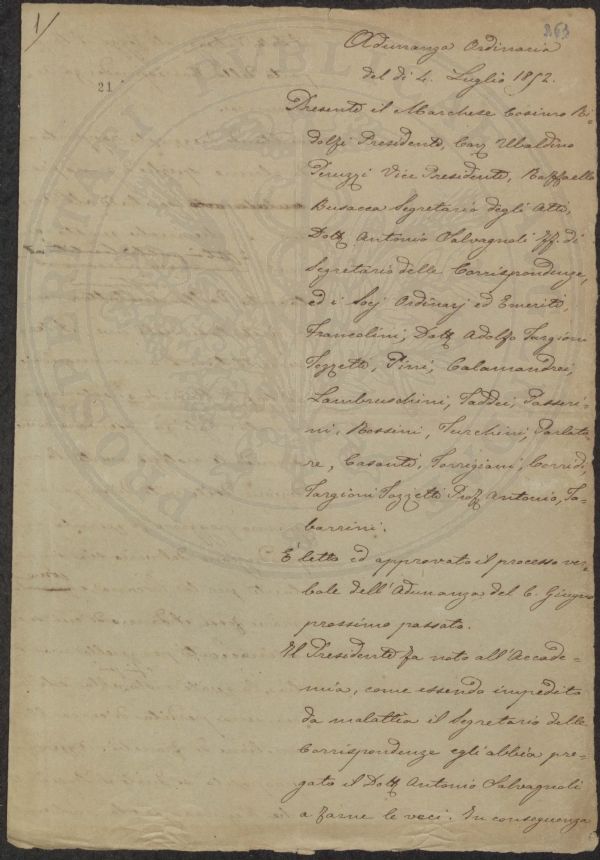 1/
263
21
Adunanza Ordinaria
del dì 4. Luglio 1852.
Presenti il Marchese Cosimo Ri-
dolfi Presidente, Cav Ubaldino
Peruzzi Vice Presidente, Raffaello
Busacca Segretario degli Atti,
Dott Antonio Salvagnoli ff. di
Segretario delle Corrispondenze,
ed i Socj Ordinarj ed Emeriti,
Francolini, Dott Adolfo Targioni
Tozzetti, Pini, Calamandrei,
Lambruschini, Taddei, Passeri-
ni, Rossini, Turchini, Parlato-
re, Casanti, Torrigiani, Corridi,
Targioni Tozzetti Prof Antonio, Ta-
barrini.
È letto ed approvato il processo ver-
bale dell'Adunanza del 6. Giugno
prossimo passato.
Il Presidente fa noto all'Accade-
mia, come essendo impedito
da malattia il Segretario delle
Corrispondenze egli abbia pre-
gato il Dott Antonio Salvagnoli
a farne le veci. In conseguenza